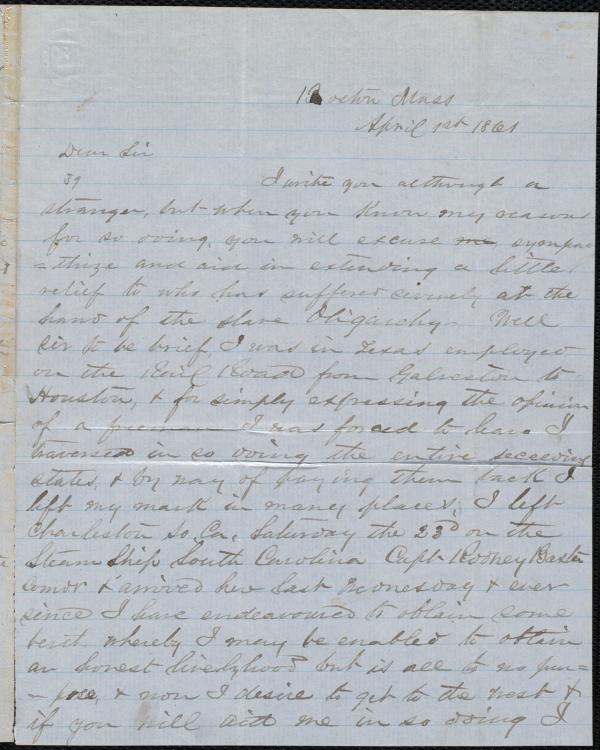 Boston Mass
April 1st 1861
Dear Sir
I write you although a
stranger, but when you know my reasons
for so doing, you will excuse me sympa
=thize and aid in extending a little
relief to who has suffered severely at the
hand of the slave Oligarchy. Well
sir to be brief, I was in Texas employed
on the Rail Road from Galveston to
Houston, & for simply expressing the opinion
of a freeman I was forced to leave I
traversed in so doing the entire seceeding
states, & by way of paying them back I
left my mark in many places, I left
Charleston So. Ca. Saturday the 23d on the
Steam Ship South Carolina Capt Rodney Baxter
Comdr & arrived here last Wednesday & ever
since I have endeavoured to obtain some
berth whereby I may be enabled to obtain
an honest livelyhood but is all to no pur=
-pose, & now I desire to get to the West &
if you will aid me in so doing I